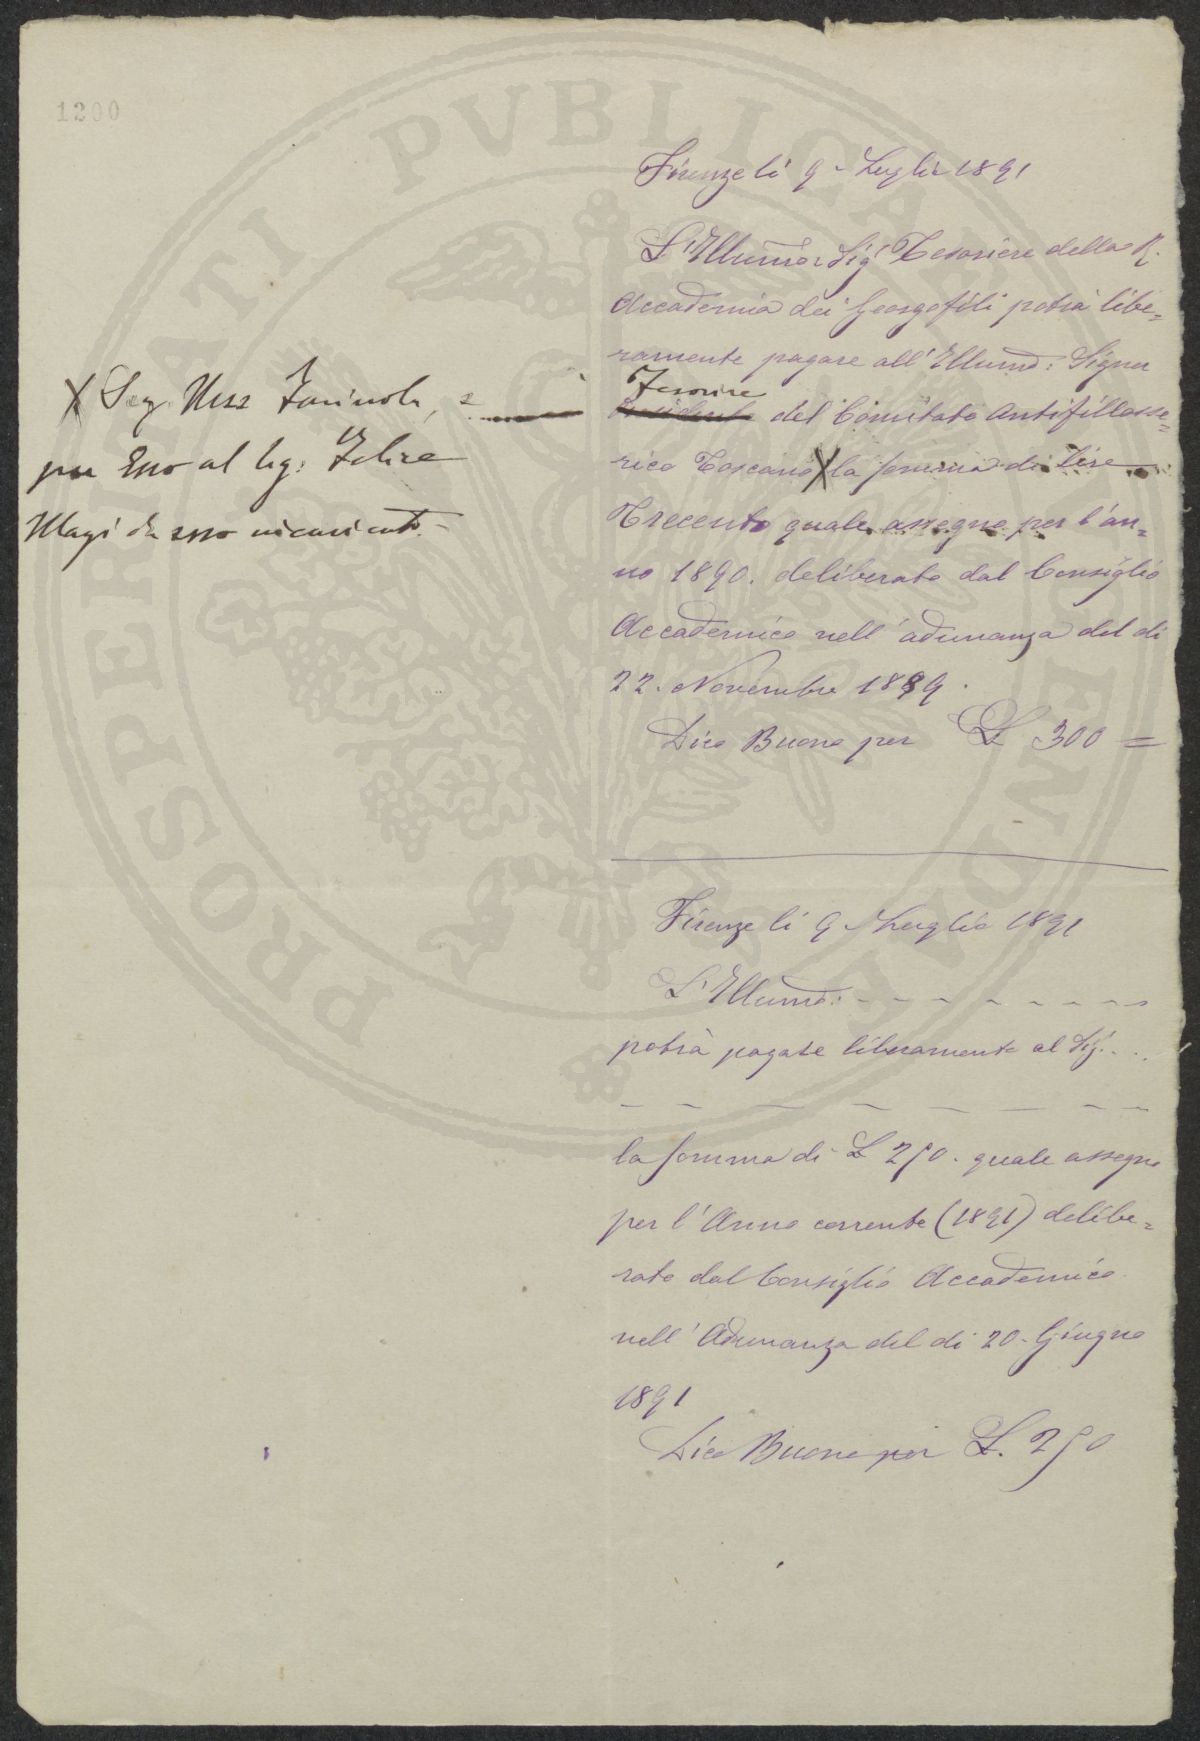 1200
Firenze li 9 - Luglio 1891
L'Illumo: Sig Tesoriere della R.
Accademia dei Georgofili potrà libe=
ramente pagare all'Illumo: Signor
Tesoriere
Presidente del Comitato Antifillosse=
rico Toscano X la somma di Lire
Trecento quale assegno per l'an=
no 1890. deliberato dal Consiglio
Accademico nell'adunanza del di
22. Novembre 1889.
Dico Buono per L 300 =
X Sig. March Farinola, e
per Esso al Sig. Felice
Magi da esso incaricato -
Firenze li 9 - Luglio 1891
L'Illumo: - - - - - - - -
potrà pagare liberamente al Sig. . .
- - - - - - - -
la somma di L 250. quale assegno
per l'Anno corrente (1891) delibe=
rato dal Consiglio Accademico
nell'Adunanza del di 20. Giugno
1891
Dico Buono per L. 250
PROSPERITATI PVBLICAE